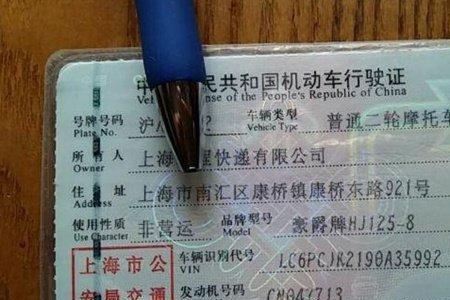 中 民共和国机动车行驶证
Vehi ense of the People's Republic of China
号牌号码 沪 2 车辆类型 普通二轮摩托车
Plate No. Vehicle Type
所有人 上海 握快递有限公司
Owner
住址 上海市南汇区康桥镇康桥东路921号
Address
使用性质 非营运 品牌型号 豪爵牌HJ125-8
Use Character Model
上海市公 车辆识别代号 LC6PCJK2190A35992
VIN
安局交通 发动机号码